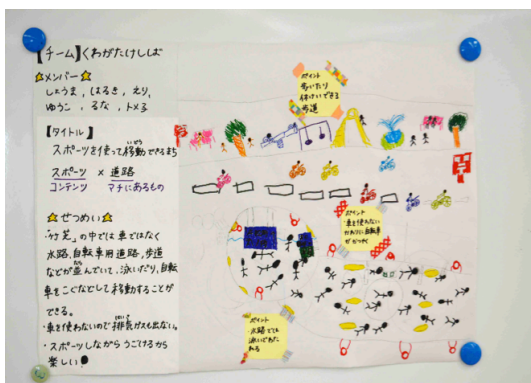 【チーム】くわがたけしし
☆メンバー☆
しょうま，はるき，えり，
ゆうこ，るな，トメ３
【タイトル】
スポーツを使って移動できるまち
いどう
スポーツ × 道路
コンテンツ　マチにあるもの
☆せつめい☆
「竹芝」の中では車ではなく
水路、自転車用道路、歩道
などが並んでいて、泳いだり、自転
車をこぐなどして移動することが
できる。
・車を使わないので排気ガスも出ない。
・スポーツしながらうごけるから
楽しい
ポイント
歩いたり
休けいできる
歩道
ポイント
・車を使わない
かわりに自転車
がかつやく
ポイント
・水路でも
泳いで